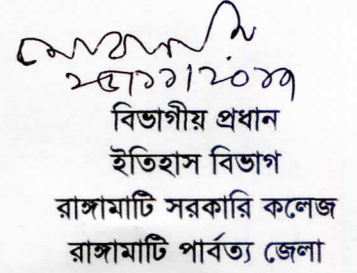 বিভাগীয় প্রধান
ইতিহাস বিভাগ
রাঙ্গামাটি সরকারি কলেজ
রাঙ্গামাটি পার্বত্য জেলা